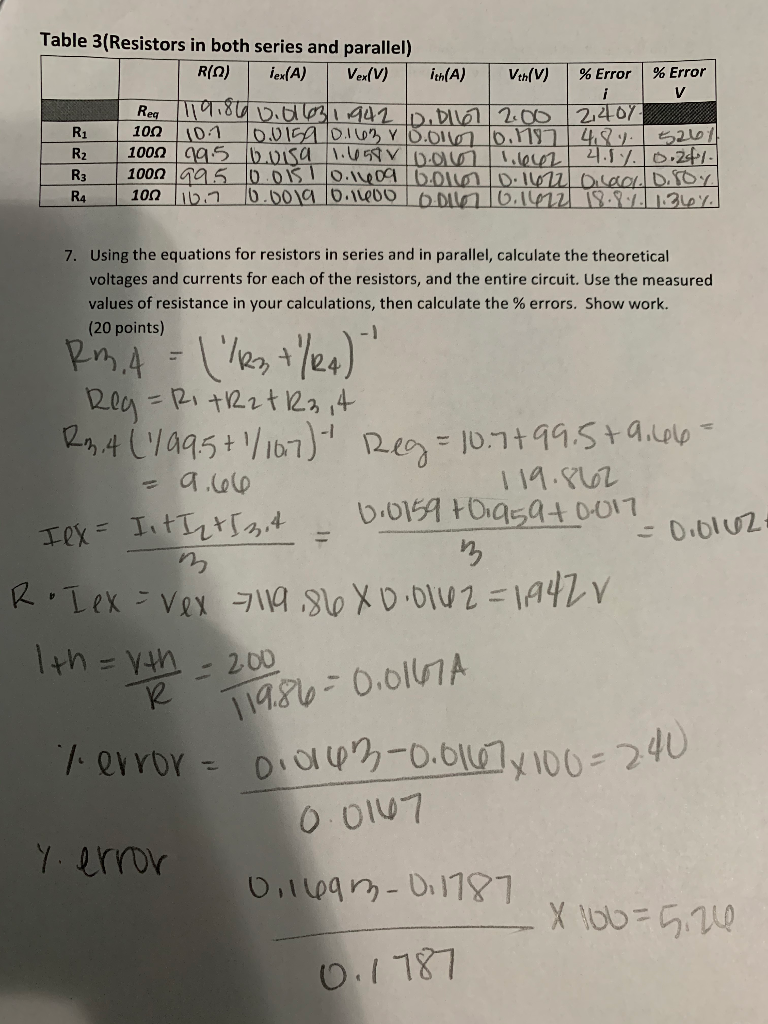 Table 3(Resistors in both series and parallel)
R(Ω) iex(A) Vex(V) ith(A) Vth(V) % Error i % Error V
Req 119.86 0.0163 1.942 0.0167 2.00 2.40%
R1 10Ω 10.7 0.0159 0.163 V 0.0167 0.1787 4.8% 5.26%
R2 100Ω 99.5 0.0159 1.658 V 0.0167 1.662 4.8% 0.24%
R3 100Ω 99.5 0.0151 0.1609 0.0167 0.1622 0.80%
R4 10Ω 10.7 0.0019 0.1600 0.0167 0.1622 18.8% 1.36%
7. Using the equations for resistors in series and in parallel, calculate the theoretical
voltages and currents for each of the resistors, and the entire circuit. Use the measured
values of resistance in your calculations, then calculate the % errors. Show work.
(20 points)
R3,4 = (1/R3 + 1/R4)^-1
Req = R1 + R2 + R3,4
R3,4 (1/99.5 + 1/10.7)^-1 Req = 10.7 + 99.5 + 9.66 =
= 9.66 119.862
Iex = I1 + I2 + I3,4 / 3 = 0.0159 + 0.959 + 0.017 / 3 = 0.0162
R · Iex = Vex → 119.86 X 0.0162 = 1.942 V
Ith = Vth / R = 2.00 / 119.86 = 0.0167 A
% error = 0.0163 - 0.0167 / 0.0167 x 100 = 2.40
% error
0.1693 - 0.1787 / 0.1787 X 100 = 5.26